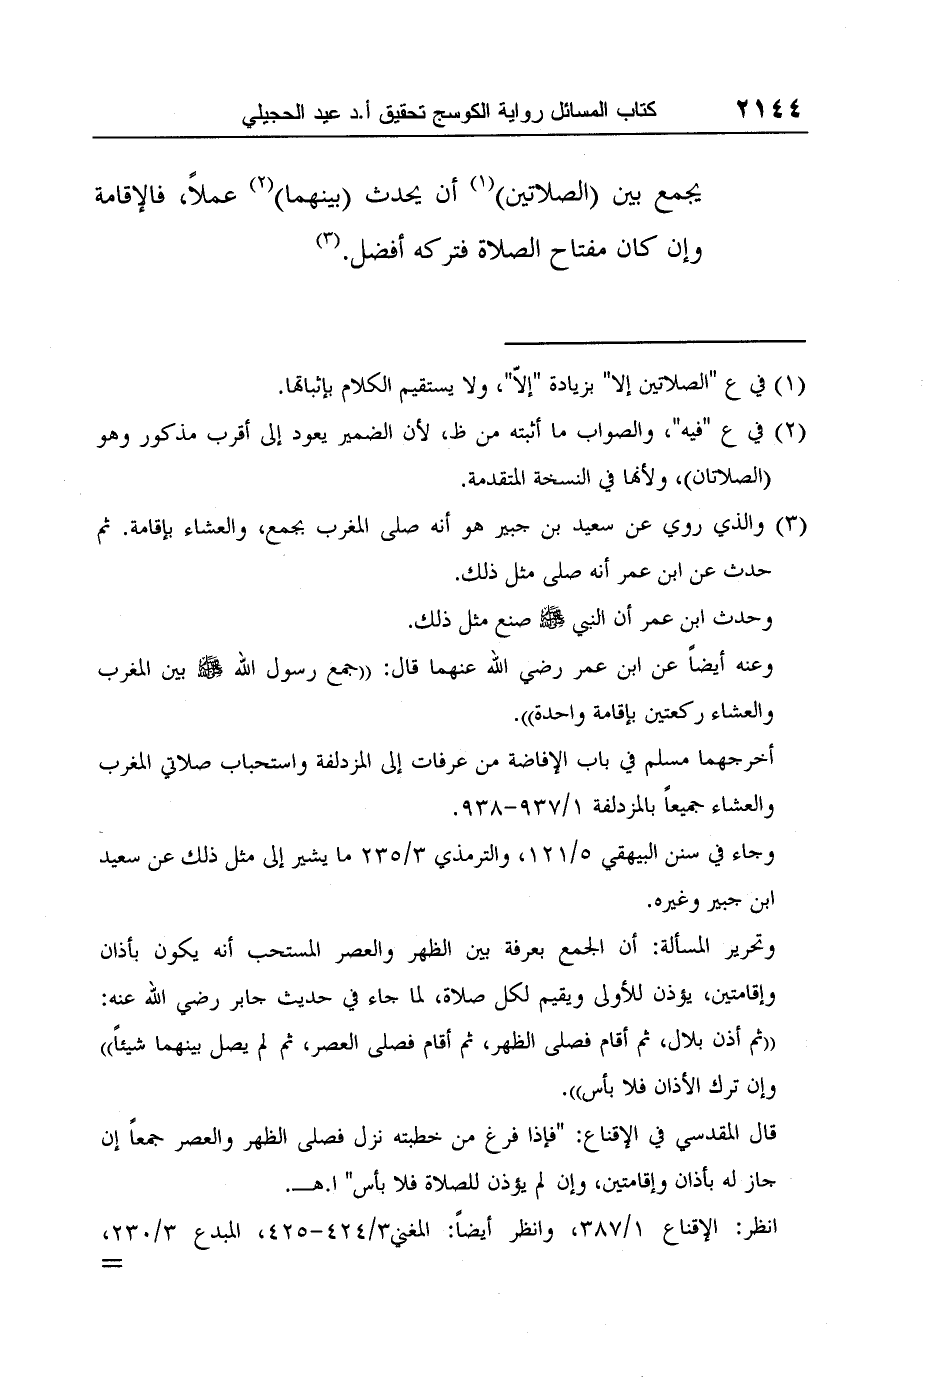 ٢١٤٤ كتاب المسائل رواية الكوسج تحقيق أ.د عيد الحجيلي
يجمع بين (الصلاتين)(١) أن يحدث (بينهما)(٢) عملاً، فالإقامة
وإن كان مفتاح الصلاة فتركه أفضل.(٣)
(١) في ع "الصلاتين إلا" بزيادة "إلاّ"، ولا يستقيم الكلام بإثباتها.
(٢) في ع "فيه"، والصواب ما أثبته من ظ، لأن الضمير يعود إلى أقرب مذكور وهو
(الصلاتان)، ولأنها في النسخة المتقدمة.
(٣) والذي روي عن سعيد بن جبير هو أنه صلى المغرب بجمع، والعشاء بإقامة. ثم
حدث عن ابن عمر أنه صلى مثل ذلك.
وحدث ابن عمر أن النبي ﷺ صنع مثل ذلك.
وعنه أيضاً عن ابن عمر رضي الله عنهما قال: ((جمع رسول الله ﷺ بين المغرب
والعشاء ركعتين بإقامة واحدة)).
أخرجهما مسلم في باب الإفاضة من عرفات إلى المزدلفة واستحباب صلاتي المغرب
والعشاء جميعاً بالمزدلفة ٩٣٧/١-٩٣٨.
وجاء في سنن البيهقي ١٢١/٥، والترمذي ٢٣٥/٣ ما يشير إلى مثل ذلك عن سعيد
ابن جبير وغيره.
وتحرير المسألة: أن الجمع بعرفة بين الظهر والعصر المستحب أنه يكون بأذان
وإقامتين، يؤذن للأولى ويقيم لكل صلاة، لما جاء في حديث جابر رضي الله عنه:
((ثم أذن بلال، ثم أقام فصلى الظهر، ثم أقام فصلى العصر، ثم لم يصل بينهما شيئاً))
وإن ترك الأذان فلا بأس)).
قال المقدسي في الإقناع: "فإذا فرغ من خطبته نزل فصلى الظهر والعصر جمعاً إن
جاز له بأذان وإقامتين، وإن لم يؤذن للصلاة فلا بأس" ا.هـ.
انظر: الإقناع ٣٨٧/١، وانظر أيضاً: المغني٤٢٤/٣-٤٢٥، المبدع ٢٣٠/٣،
=